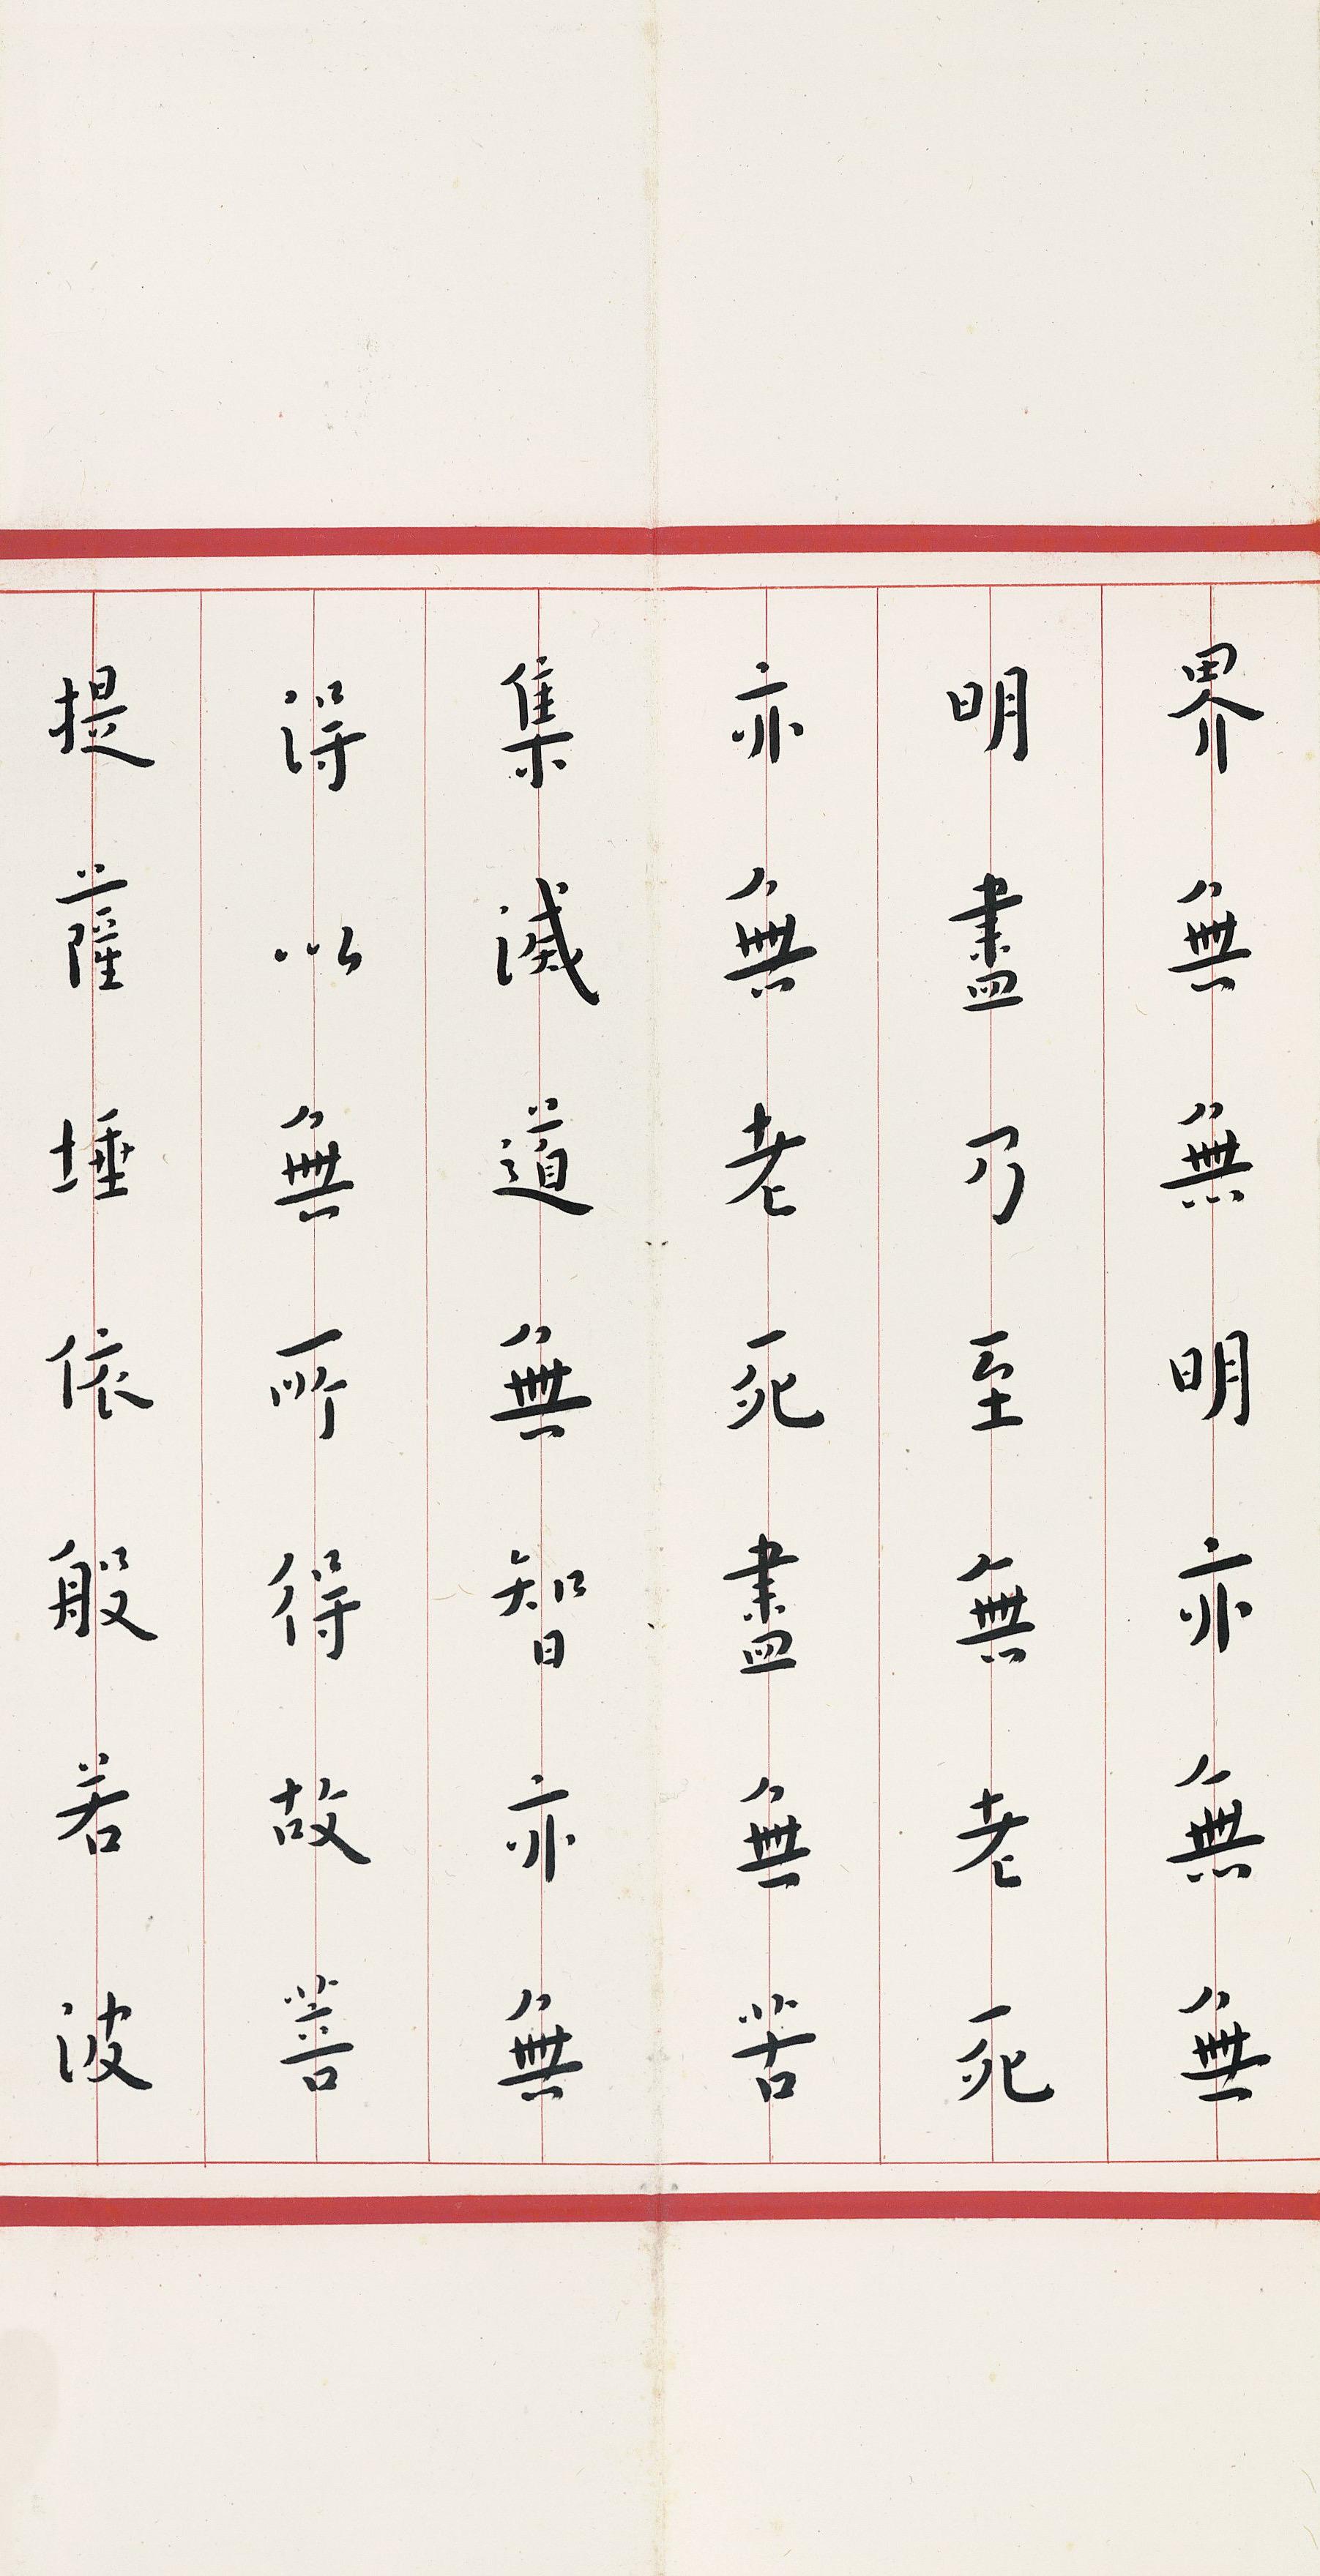 界無無明亦無無
明盡乃至無老死
亦無老死盡無苦
集滅道無智亦無
得以無所得故菩
提薩埵依般若波